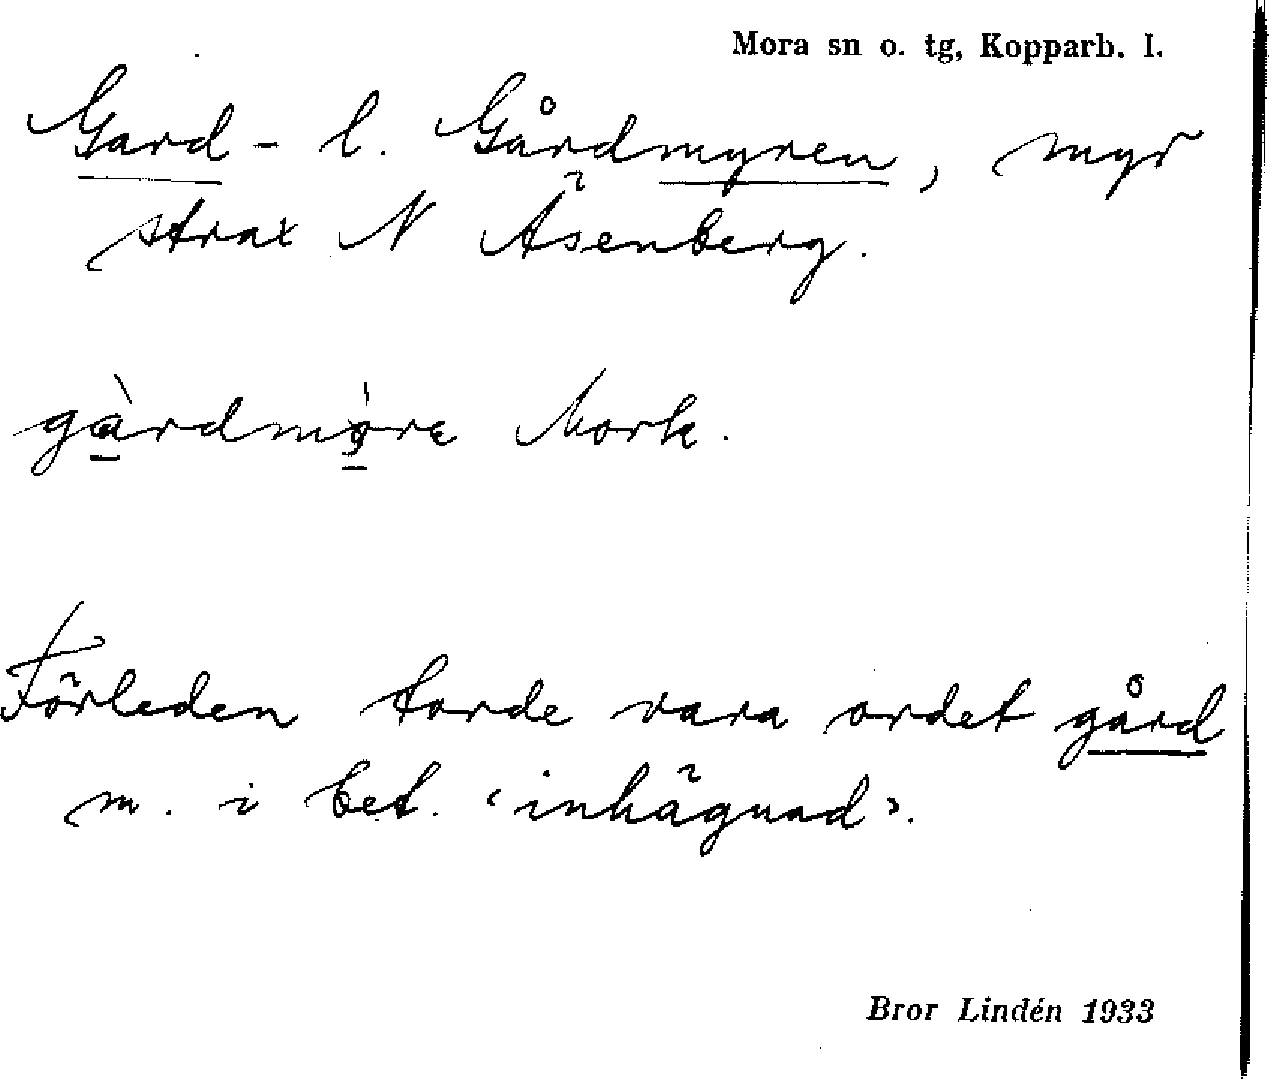 Mora sn o. tg, Kopparb. l.
Gard- l. Gårdmyren, myr
strax N Åsenberg.
gàrdmỳrɛ Mork.
Förleden torde vara ordet gård
m. i bet. ‹inhägnad›.
Bror Lindén 1933